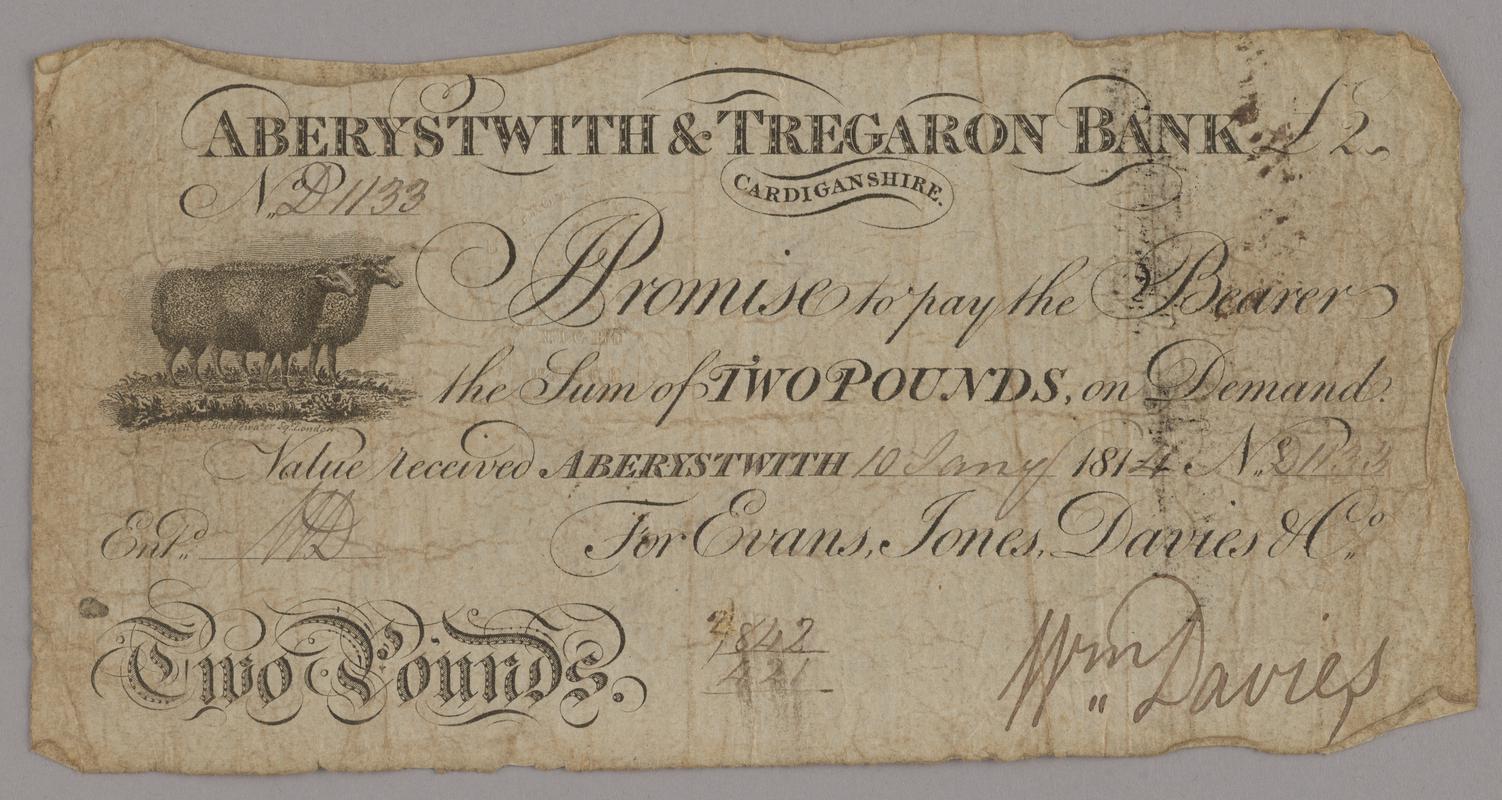 ABERYSTWITH & TREGARON BANK £2
CARDIGANSHIRE.
No. D1133
I Promise to pay the Bearer
the Sum of TWO POUNDS, on Demand.
Bridgewater Sq. London
Value received ABERYSTWITH 10 Jany 1814 No. D1133
Entd. WD
For Evans, Jones, Davies & Co.
Two Pounds.
2/842
421
Wm Davies